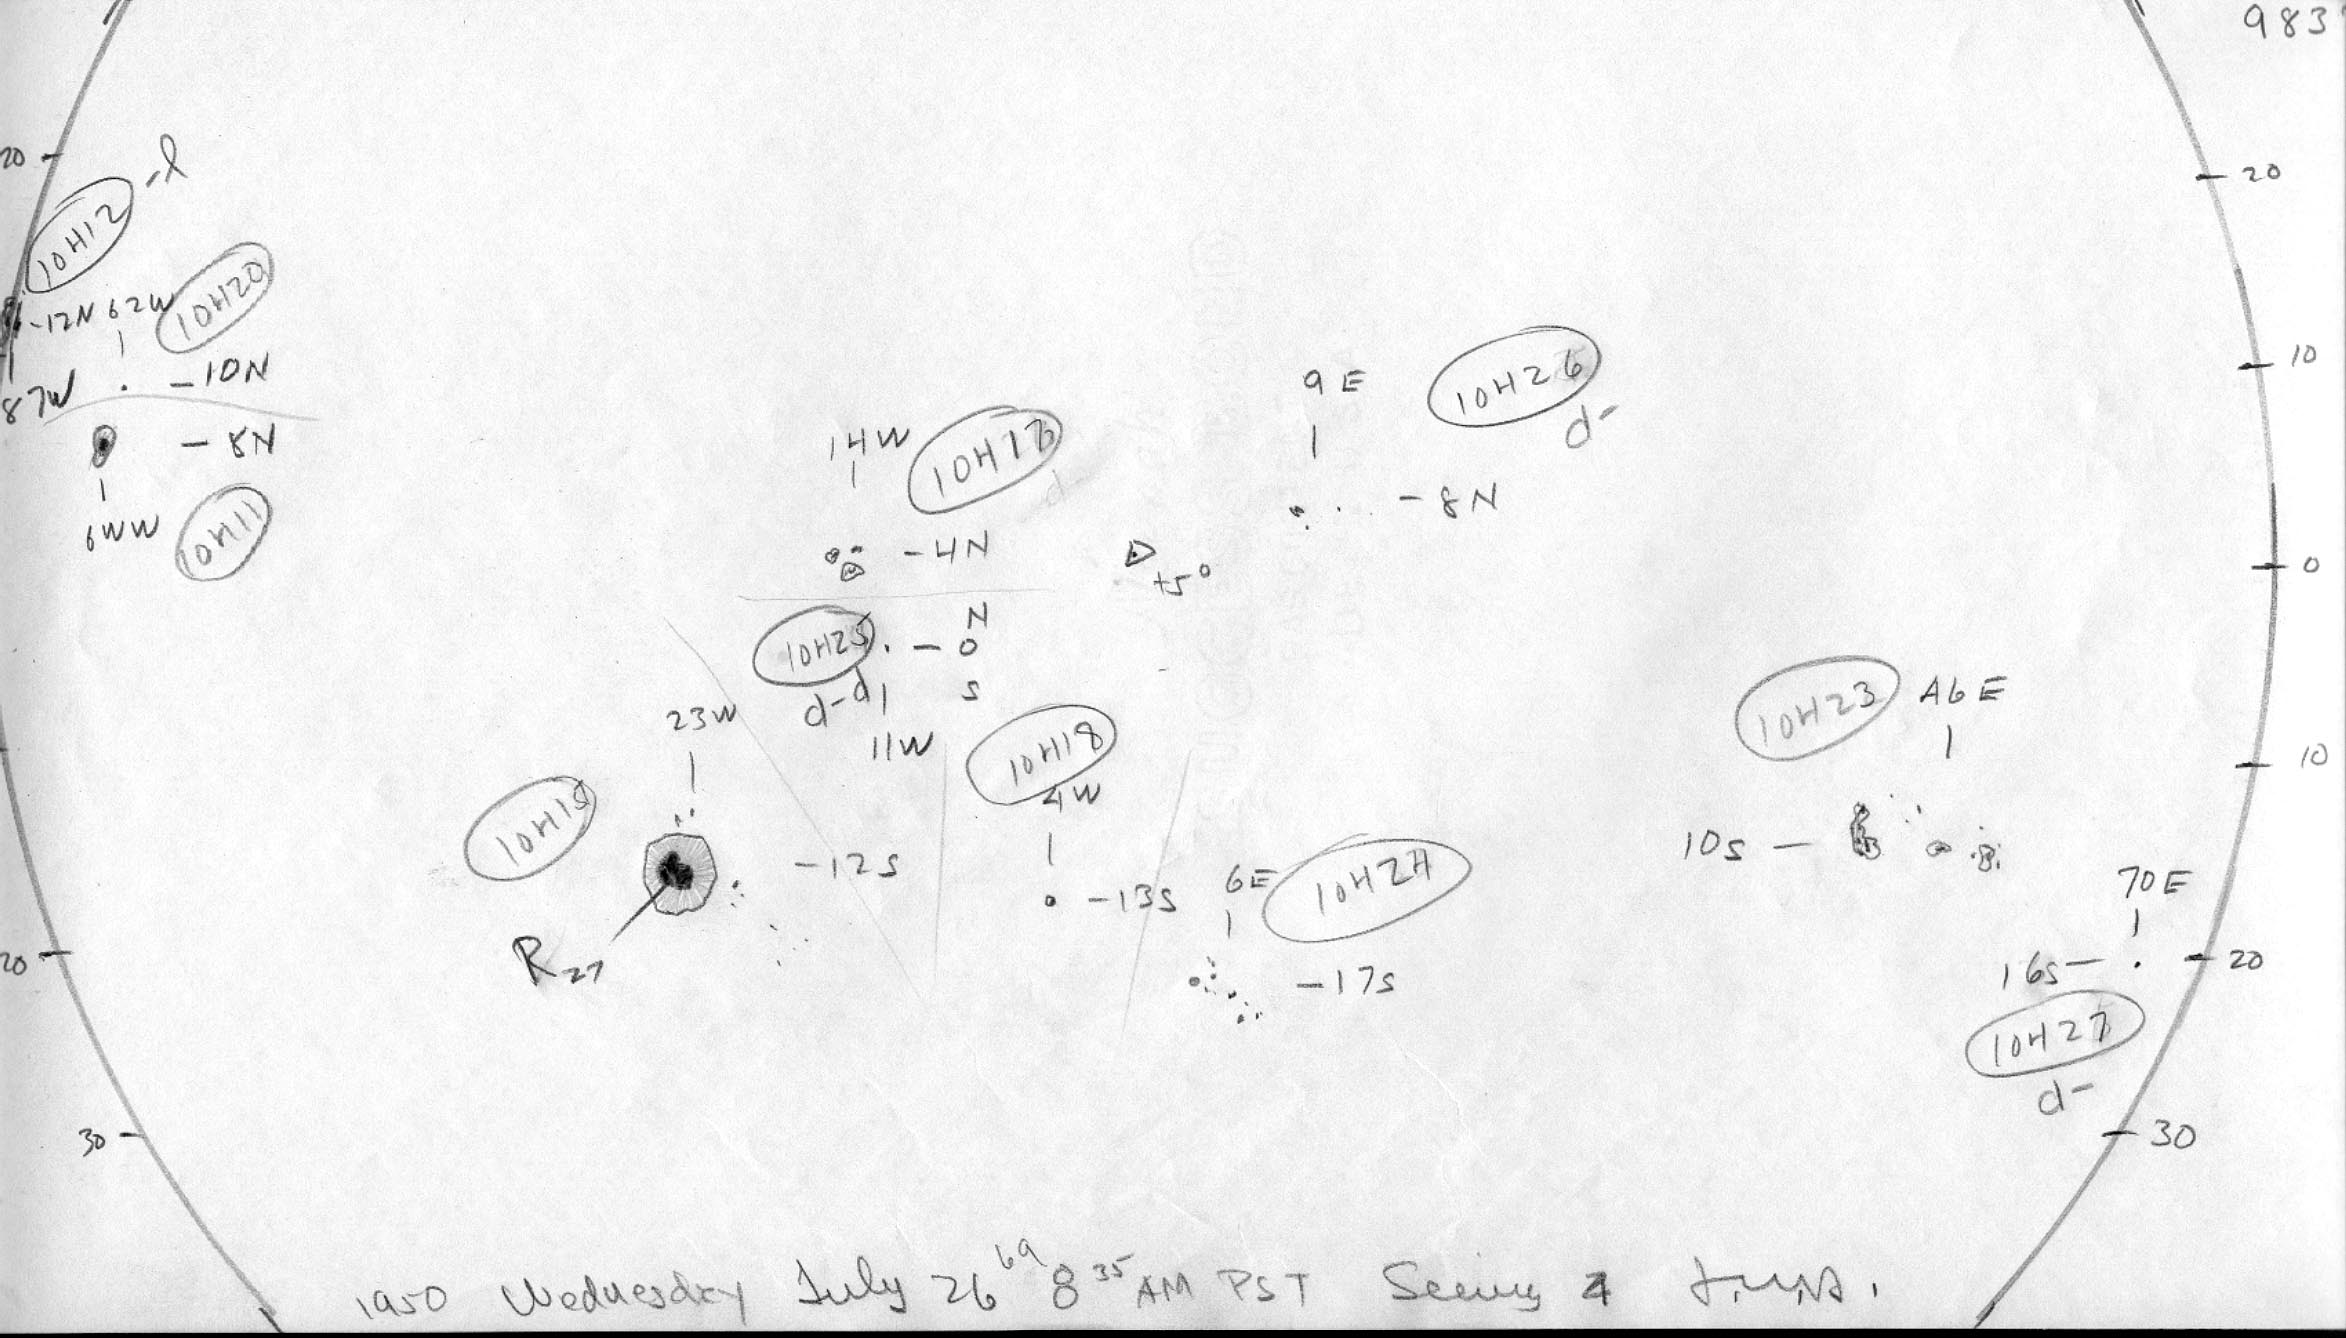 983
20
20
10H12 -l
10H20
-12N 62W
10
87W
-10N
9E
10H26
d-
-8N
14W
10H17
d-
-8N
10H11
-4N
+5°
0
10H25
N
- 0
S
d-d
11W
23W
10H18
4W
10H23
46E
10
10H15
-12S
-13S
6E
10H24
10S -
70E
R27
-17S
20
16S -
20
10H27
d-
30
30
1950 Wednesday July 26 69 8 35 AM PST Seeing 4